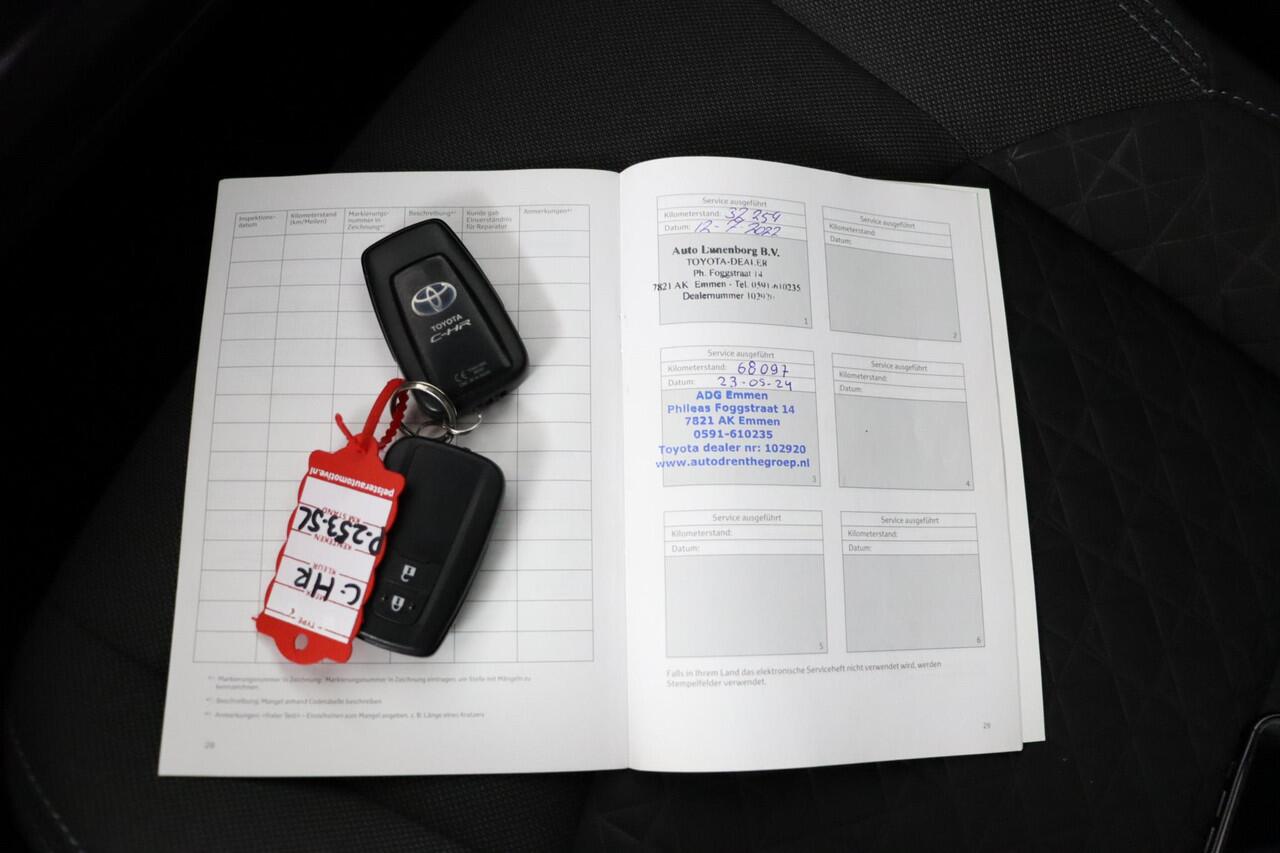 Inspektions-
datum
Kilometerstand
(km/Meilen)
Markierungs-
nummer in
Zeichnung*¹
Beschreibung*²
Kunde gab
Einverständnis
für Reparatur
Anmerkungen*³
TOYOTA
C-HR
CE
pelsterautomotive.nl
KM STAND
P-253-SL
KENTEKEN
KLEUR
C-HR
TYPE
*¹ Markierungsnummer in Zeichnung: Markierungsnummer in Zeichnung eintragen, um Stelle mit Mängeln zu
kennzeichnen.
*² Beschreibung: Mangel anhand Codetabelle beschreiben
*³ Anmerkungen: <freier Text> – Einzelheiten zum Mangel angeben, z. B. Länge eines Kratzers
28
Service ausgeführt
Kilometerstand: 37 254
Datum: 12-7-2022
Auto Lunenborg B.V.
TOYOTA-DEALER
Ph. Foggstraat 14
7821 AK Emmen - Tel. 0591-610235
Dealernummer 102920
1
Service ausgeführt
Kilometerstand:
Datum:
2
Service ausgeführt
Kilometerstand: 68097
Datum: 23-05-24
ADG Emmen
Phileas Foggstraat 14
7821 AK Emmen
0591-610235
Toyota dealer nr: 102920
www.autodrenthegroep.nl
3
Service ausgeführt
Kilometerstand:
Datum:
4
Service ausgeführt
Kilometerstand:
Datum:
5
Service ausgeführt
Kilometerstand:
Datum:
6
Falls in Ihrem Land das elektronische Serviceheft nicht verwendet wird, werden
Stempelfelder verwendet.
29